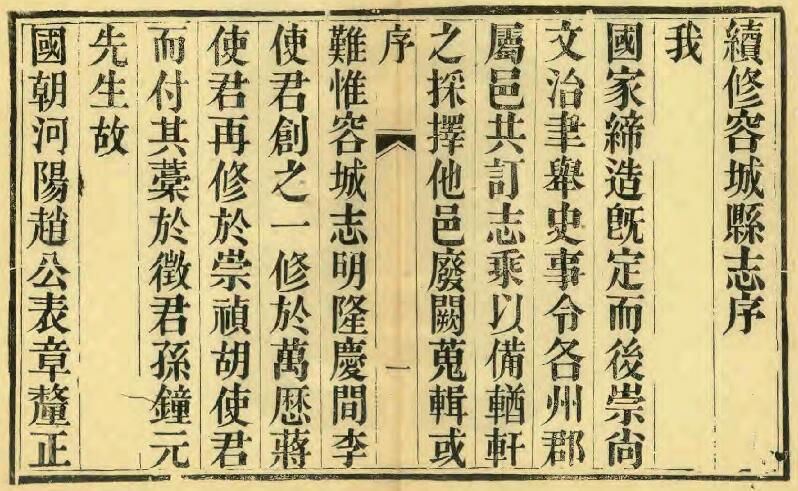 續修容城縣志序
我
國家締造既定而後崇尚
文治聿舉史事令各州郡
屬邑共訂志乘以備輶軒
之採擇他邑廢闕蒐輯或
序
一
難惟容城志明隆慶間李
使君創之一修於萬歷蔣
使君再修於崇禎胡使君
而付其藁於徵君孫鐘元
先生故
國朝河陽趙公表章釐正